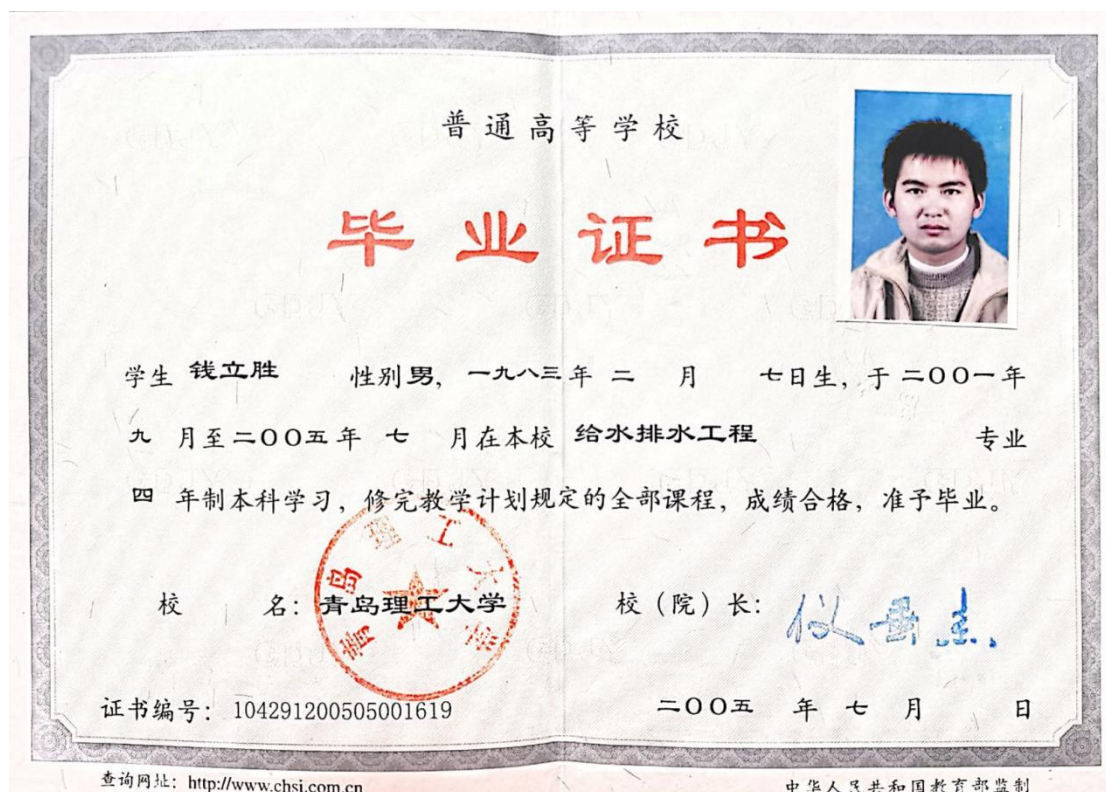 普通高等学校
毕业证书
学生 钱立胜 性别男，一九八三年 二 月 七日生，于二〇〇一年
九 月至二〇〇五年 七 月在本校 给水排水工程 专业
四 年制本科学习，修完教学计划规定的全部课程，成绩合格，准予毕业。
青岛理工大学
校 名：青岛理工大学 校（院）长：仪垂杰
证书编号：104291200505001619 二〇〇五 年 七 月 日
查询网址：http://www.chsi.com.cn 中华人民共和国教育部监制